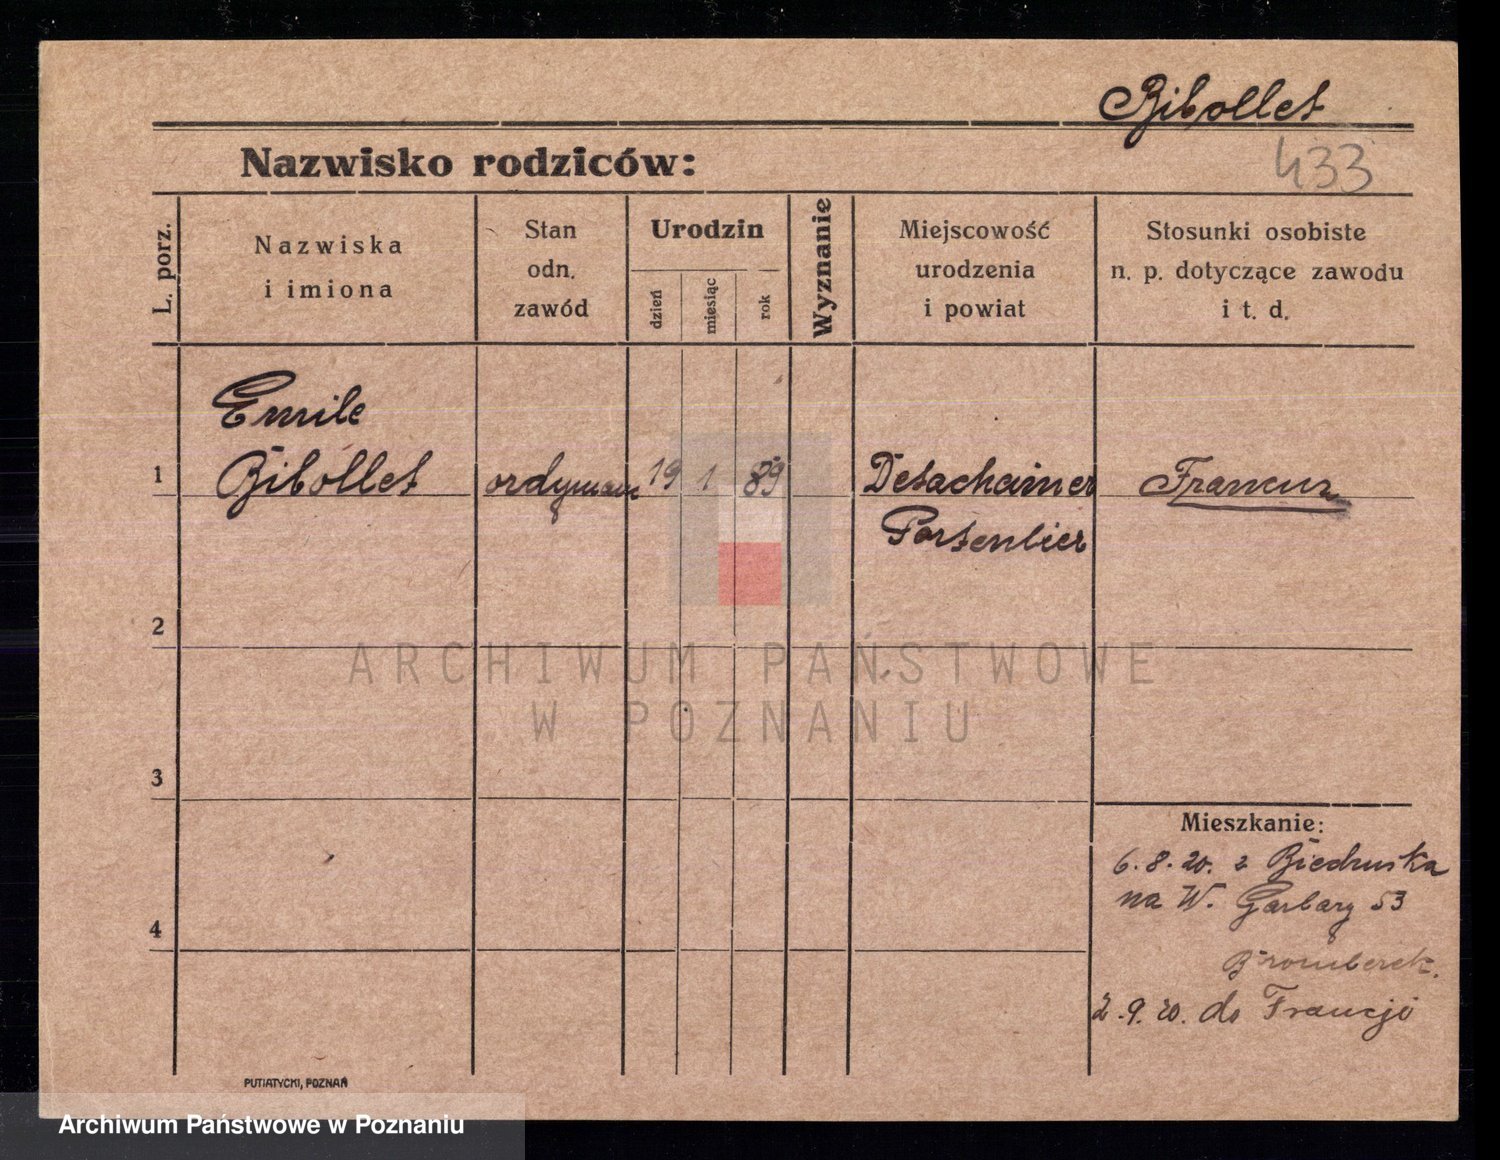 Bibollet
433
Nazwisko rodziców:
L. porz.
Nazwiska
i imiona
Stan
odn.
zawód
Urodzin
dzień
miesiąc
rok
Wyznanie
Miejscowość
urodzenia
i powiat
Stosunki osobiste
n. p. dotyczące zawodu
i t. d.
Emile
1 Bibollet 19 1 89 Francuz
2
3
4
Mieszkanie:
6.8.20. z Biedruska
na W. Garbary 53
Bromberek.
2.9.20. do Francji
PUTIATYCKI, POZNAŃ
ARCHIWUM PAŃSTWOWE
W POZNANIU
Archiwum Państwowe w Poznaniu